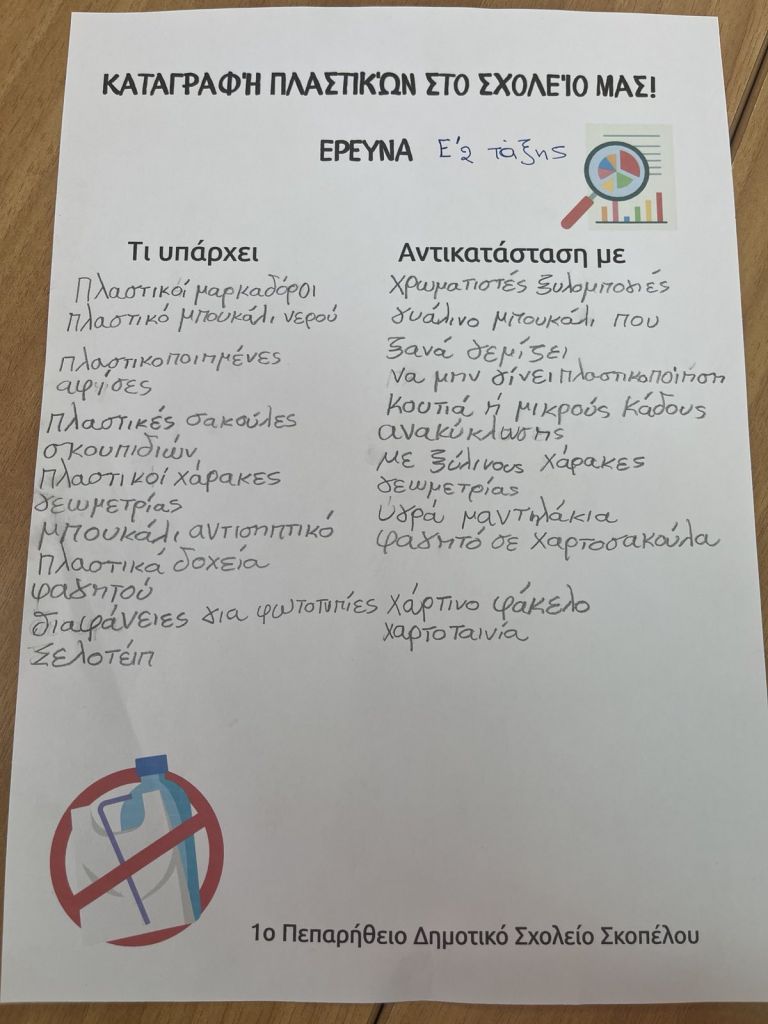 ΚΑΤΑΓΡΑΦΉ ΠΛΑΣΤΙΚΏΝ ΣΤΟ ΣΧΟΛΕΊΟ ΜΑΣ!
ΕΡΕΥΝΑ Ε'2 τάξης
Τι υπάρχει
Πλαστικοί μαρκαδόροι
πλαστικό μπουκάλι νερού
πλαστικοποιημένες
αφίσες
πλαστικές σακούλες
σκουπιδιών
πλαστικοί χάρακες
γεωμετρίας
μπουκάλι αντισηπτικό
πλαστικά δοχεία
φαγητού
διαφάνειες για φωτοτυπίες
Σελοτέιπ
Αντικατάσταση με
χρωματιστές ξυλομπογιές
γυάλινο μπουκάλι που
ξανά γεμίζει
να μην γίνει πλαστικοποίηση
κουτιά ή μικρούς κάδους
ανακύκλωσης
με ξύλινους χάρακες
γεωμετρίας
ύγρά μαντηλάκια
φαγητό σε χαρτοσακούλα
χάρτινο φάκελο
χαρτοταινία
1ο Πεπαρήθειο Δημοτικό Σχολείο Σκοπέλου